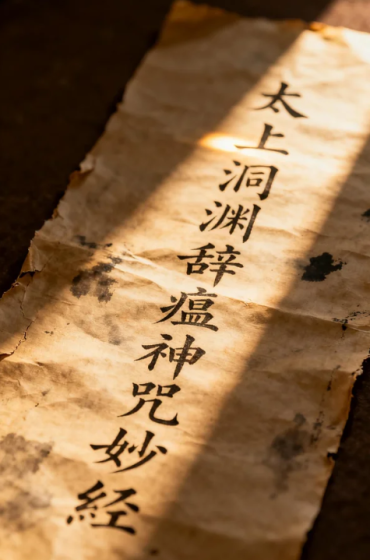 太上洞渊辞瘟神咒妙经